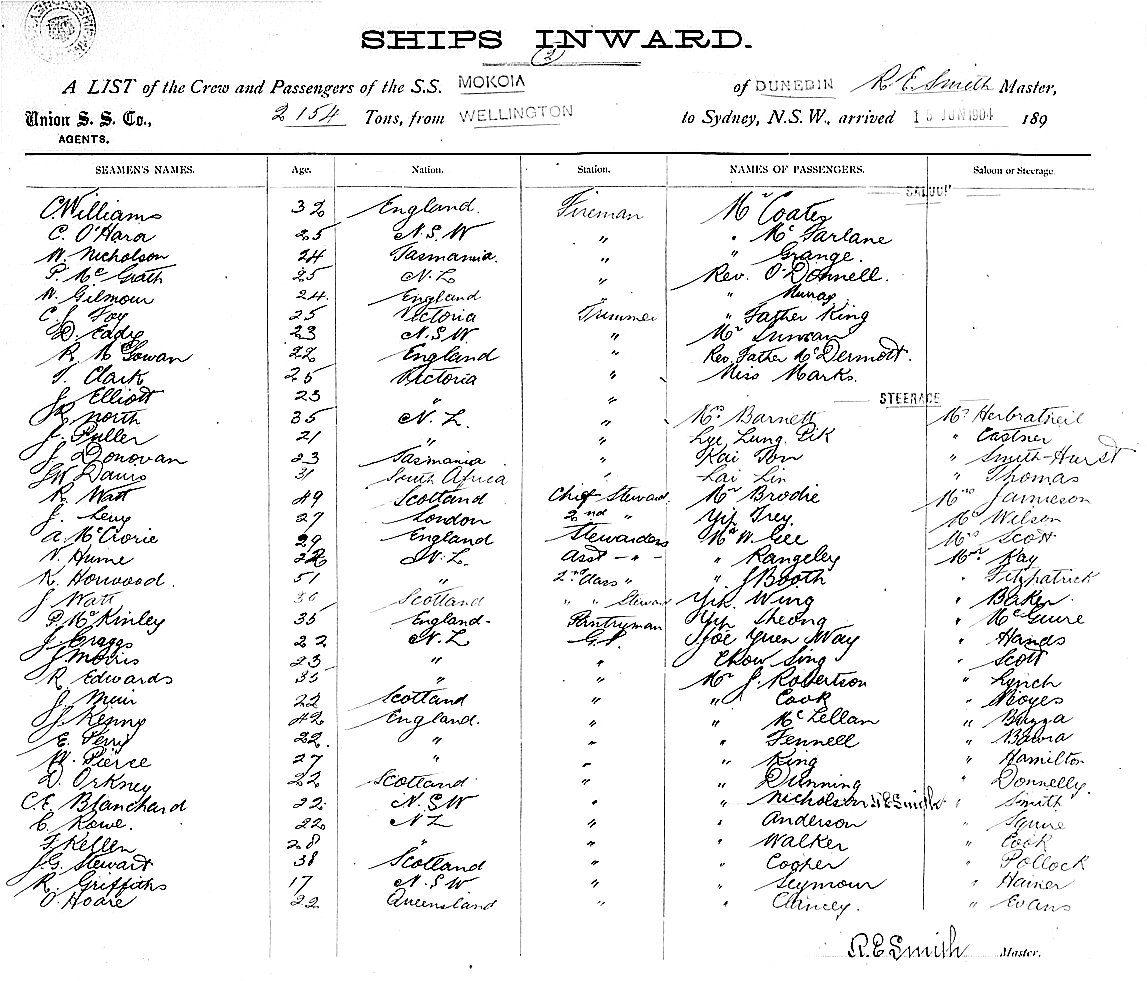 SHIPS INWARD.
(2)
A LIST of the Crew and Passengers of the S.S. MOKOIA of DUNEDIN R. E. Smith Master,
Union S. S. Co., AGENTS. 2154 Tons, from WELLINGTON to Sydney, N.S.W., arrived 15 JUN 1904 189
SEAMEN'S NAMES. Age. Nation. Station. NAMES OF PASSENGERS. Saloon or Steerage
SALOON
C. Williams 32 England. Fireman Mr Coates
C. O'Hara 25 N.S.W " " Mc Farlane
W. Nicholson 24 Tasmania. " " Grange.
P. Mc Grath 25 N.Z. " Rev. O'Donnell.
W. Gilmour 24. England " " Murray
C. J. Foy 25 Victoria Trimmer " Father King
D. Eadie 23 N.S.W. " Mr
R. McGowan 22 England " Rev. Father Mc Dermott.
T. Clark 25 Victoria " Miss Marks.
J. Elliott 23 " " STEERAGE
North 35 N.Z. " Barnett
J. Fuller 21 " " Lye Lung Pik " Castner
J. Donovan 23 Tasmania. " Kai Ton " Smith-Hurst
Davis 31 South Africa " Lai Lin " Thomas
R. Watt 49 Scotland Chief Steward Mr Brodie Mrs Jamieson
J. Levy 27 London 2nd " Yip Trey. Wilson
A. McCrorie 29 England Stewardess W. Gee Scott
V. Hume N.Z. Asst - " - " Rangeley Kay
R. Horwood. 51 " 2nd Class " " J Booth " Fitzpatrick
J Watt Scotland " " Steward Yik Wing " Baker.
P. McKinley 35 England. Pantryman Yip Sheong " McGuire
J. Craggs 22 N.Z G.S. Yoe Yuen Way " Hands
J. Morris 23 " " Chow Sing " Scott
R Edwards 35 " " Mr J. Robertson " Lynch
J. Muir 22 Scotland " " Cook " Noyes
J. Kenny 42 England. " " McLellan "
E. Perry 22. " " " Fennell "
W. Pierce 27 " " " King " Hamilton
D. Orkney 22 Scotland " " Dunning " Donnelly.
C. E. Blanchard 22. N.S.W " " Nicholson R E Smith " Smith
C. Rowe. 22 N Z " " Anderson " Squire
Kellen 28 " " " Walker " Cook
J.G. Stewart 38 Scotland " " Cooper " Pollock
R. Griffiths 17 N.S.W " " Seymour " Hainer
O. Hoare 22 Queensland " " Clancey. " Evans
R. E Smith Master.